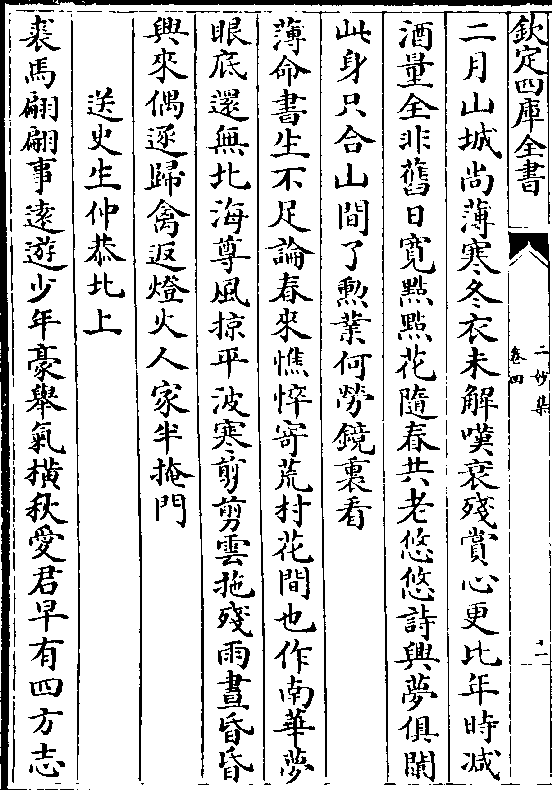 欽定四庫全書
二妙集
卷四
十一
二月山城尚薄寒冬衣未解嘆衰殘賞心更比年時減
酒量全非舊日寛㸃㸃花隨春共老悠悠詩興夢俱闌
此身只合山間了勲業何勞鏡裏看
薄命書生不足論春來憔悴寄荒村花間也作南華夢
眼底還無北海尊風掠平波寒剪剪雲拖殘雨晝昏昏
興來偶逐歸禽返燈火人家半掩門
送史生仲恭北上
裘馬翩翩事逺遊少年豪舉氣橫秋愛君早有四方志